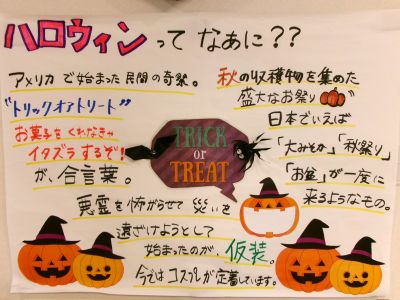 ハロウィンって なあに??
アメリカ で始まった 民間の奇祭。
"トリックオアトリート"
お菓子をくれなきゃ
イタズラするぞ!
が、合言葉。
秋の収穫物を集めた
盛大なお祭り
日本でいえば
「大みそか」「秋祭り」
「お盆」が一度に
来るようなもの。
TRICK
or
TREAT
悪霊を怖がらせて 災いを
遠ざけようとして
始まったのが、仮装。
今ではコスプレが定着しています。